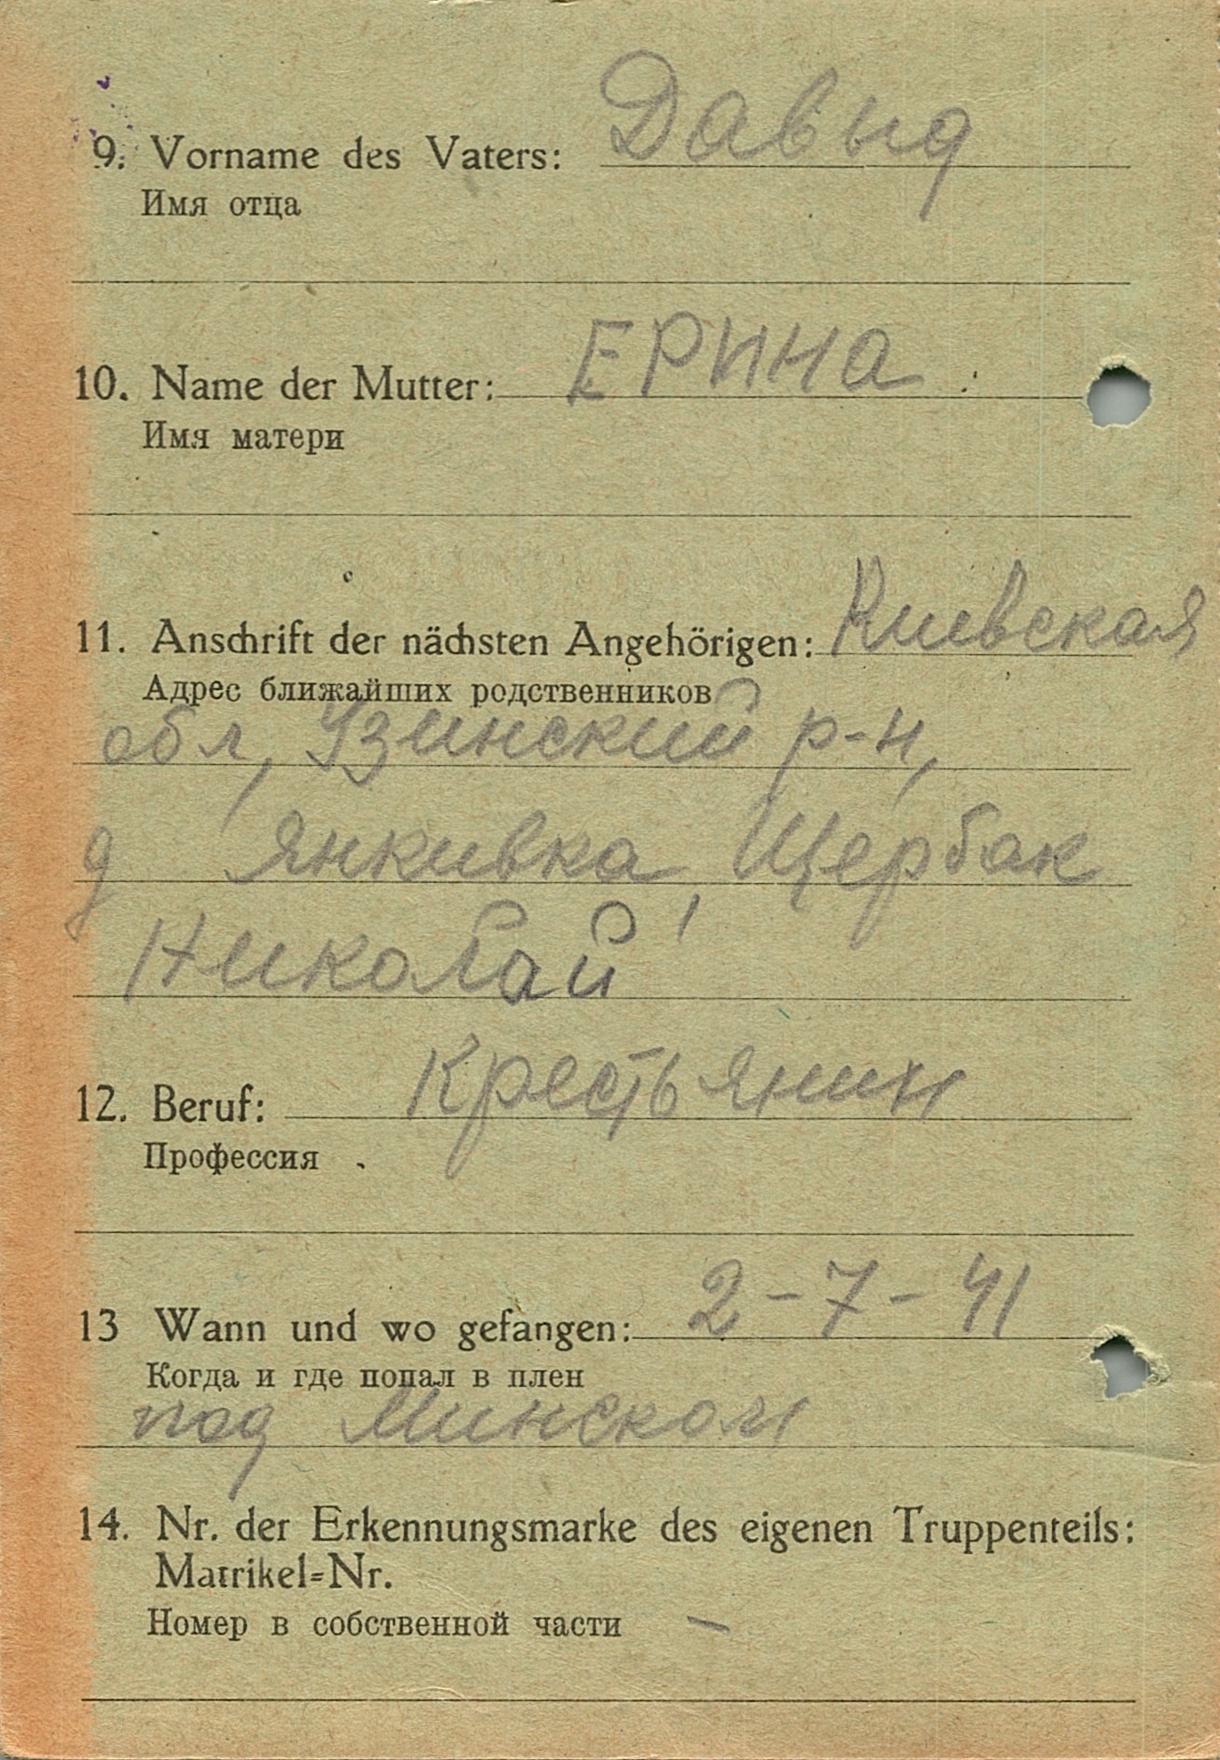 9. Vorname des Vaters: Давыд
Имя отца
10. Name der Mutter: ЕРИНА
Имя матери
11. Anschrift der nächsten Angehörigen: Киевская
Адрес ближайших родственников
обл, Узинский р-н,
д Янкивка, Щербак
Николай
12. Beruf: Крестьянин
Профессия
13 Wann und wo gefangen: 2-7-41
Когда и где попал в плен
под Минском
14. Nr. der Erkennungsmarke des eigenen Truppenteils:
Matrikel=Nr.
Номер в собственной части —